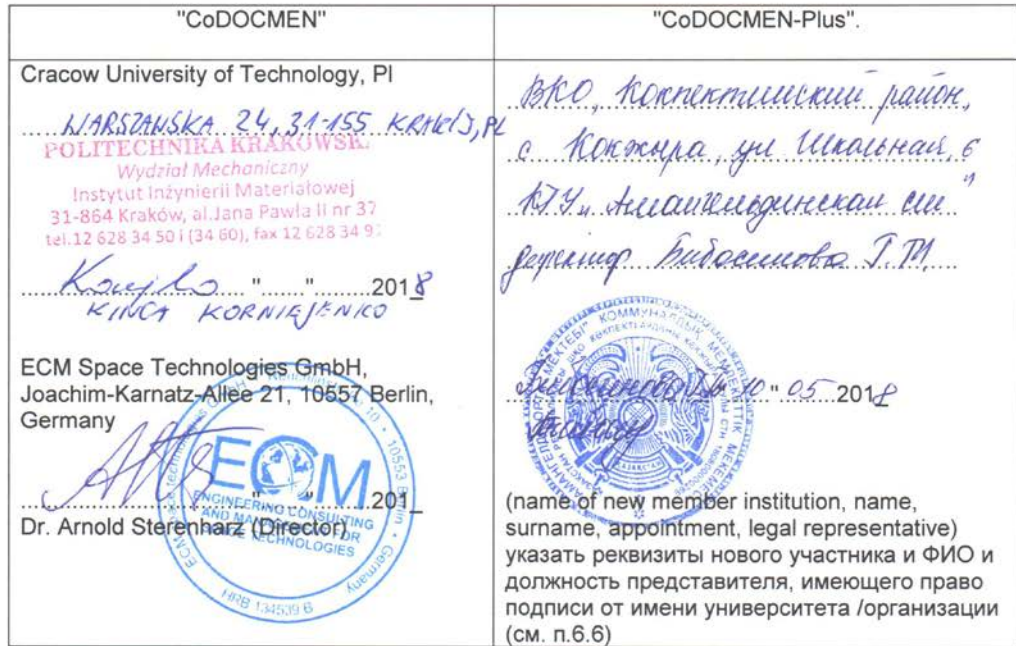 "CoDOCMEN"
"CoDOCMEN-Plus".
Cracow University of Technology, Pl
WARSZAWSKA 24, 31-155 KRAKÓW, PL
POLITECHNIKA KRAKOWSK
Wydział Mechaniczny
Instytut Inżynierii Materiałowej
31-864 Kraków, al.Jana Pawła II nr 37
tel.12 628 34 50 i (34 60), fax 12 628 34 9
"......".........2018
KINGA KORNIEJENKO
ECM Space Technologies GmbH,
Joachim-Karnatz-Allee 21, 10557 Berlin,
Germany
ECM
ENGINEERING CONSULTING
AND MANAGEMENT FOR
SPACE TECHNOLOGIES
10553 Berlin • Germany
HRB 134539 B
201_
Dr. Arnold Sterenharz (Director)
ВКО, Кокпектинский район,
с Кокжыра, ул Школьная, 6
КГУ "Амангельдинская сш"
директор Бибосинова Г.М.
КОММУНАЛДЫҚ МЕМЛЕКЕТТІК МЕКЕМЕ
ҚАЗАҚСТАН
10 " 05 2018
(name of new member institution, name,
surname, appointment, legal representative)
указать реквизиты нового участника и ФИО и
должность представителя, имеющего право
подписи от имени университета /организации
(см. п.6.6)